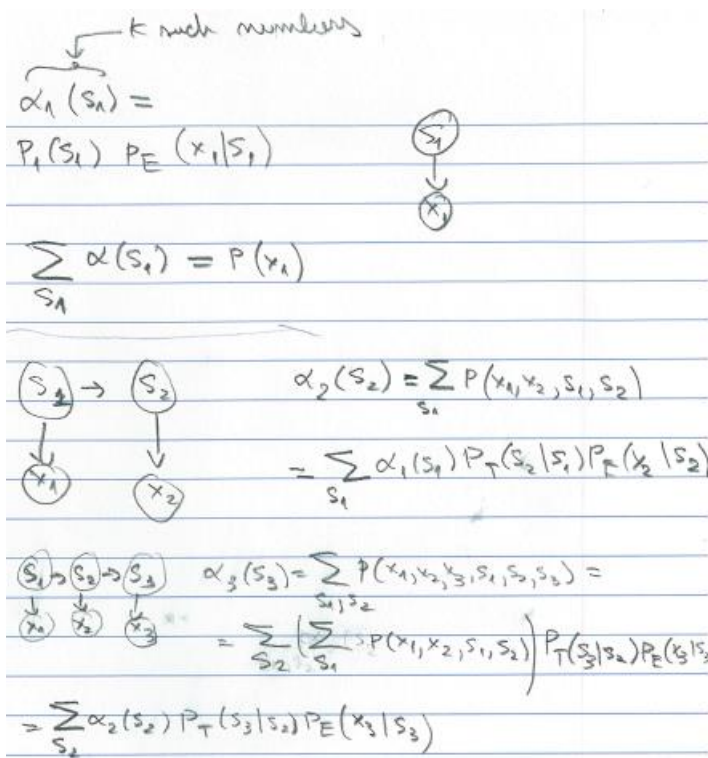 K such numbers
α₁(S₁) =
P₁(S₁) P_E(x₁|S₁)
S₁
x₁
∑_{S₁} α(S₁) = P(x₁)
S₁ → S₂
x₁ x₂
α₂(S₂) = ∑_{S₁} P(x₁,x₂,S₁,S₂)
= ∑_{S₁} α₁(S₁) P_T(S₂|S₁) P_E(x₂|S₂)
S₁ → S₂ → S₃
x₁ x₂ x₃
α₃(S₃) = ∑_{S₁,S₂} P(x₁,x₂,x₃,S₁,S₂,S₃) =
= ∑_{S₂} (∑_{S₁} P(x₁,x₂,S₁,S₂)) P_T(S₃|S₂) P_E(x₃|S₃
= ∑_{S₂} α₂(S₂) P_T(S₃|S₂) P_E(x₃|S₃)